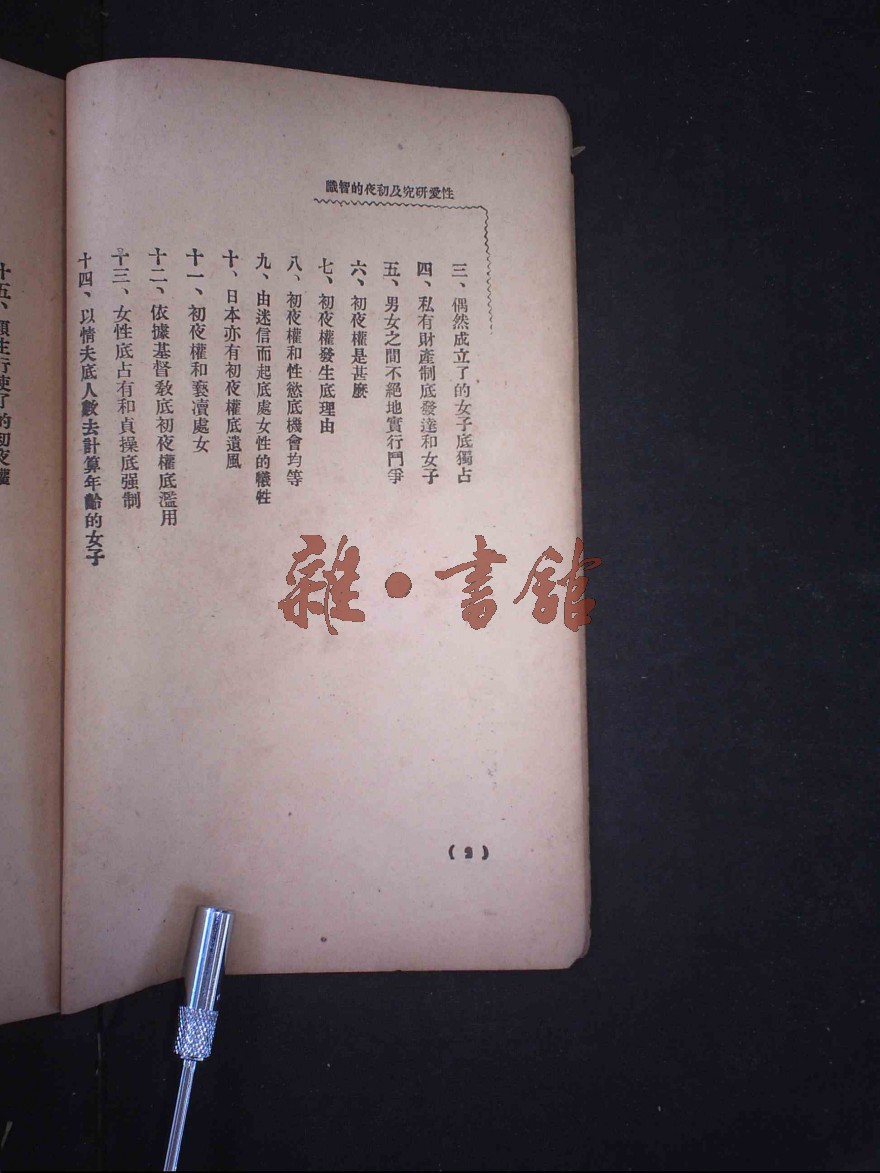 性愛研究及初夜的智識
三、偶然成立了的女子底獨占
四、私有財產制底發達和女子
五、男女之間不絕地實行鬥爭
六、初夜權是甚麼
七、初夜權發生底理由
八、初夜權和性慾底機會均等
九、由迷信而起底處女性的犧牲
十、日本亦有初夜權底遺風
十一、初夜權和褻瀆處女
十二、依據基督敎底初夜權底濫用
十三、女性底占有和貞操底强制
十四、以情夫底人數去計算年齡的女子
(2)
雜·書館